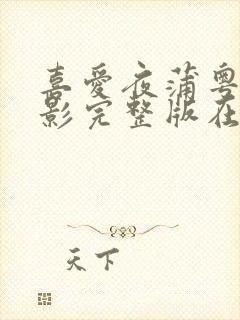 喜爱夜蒲粤
影完整版在
天下